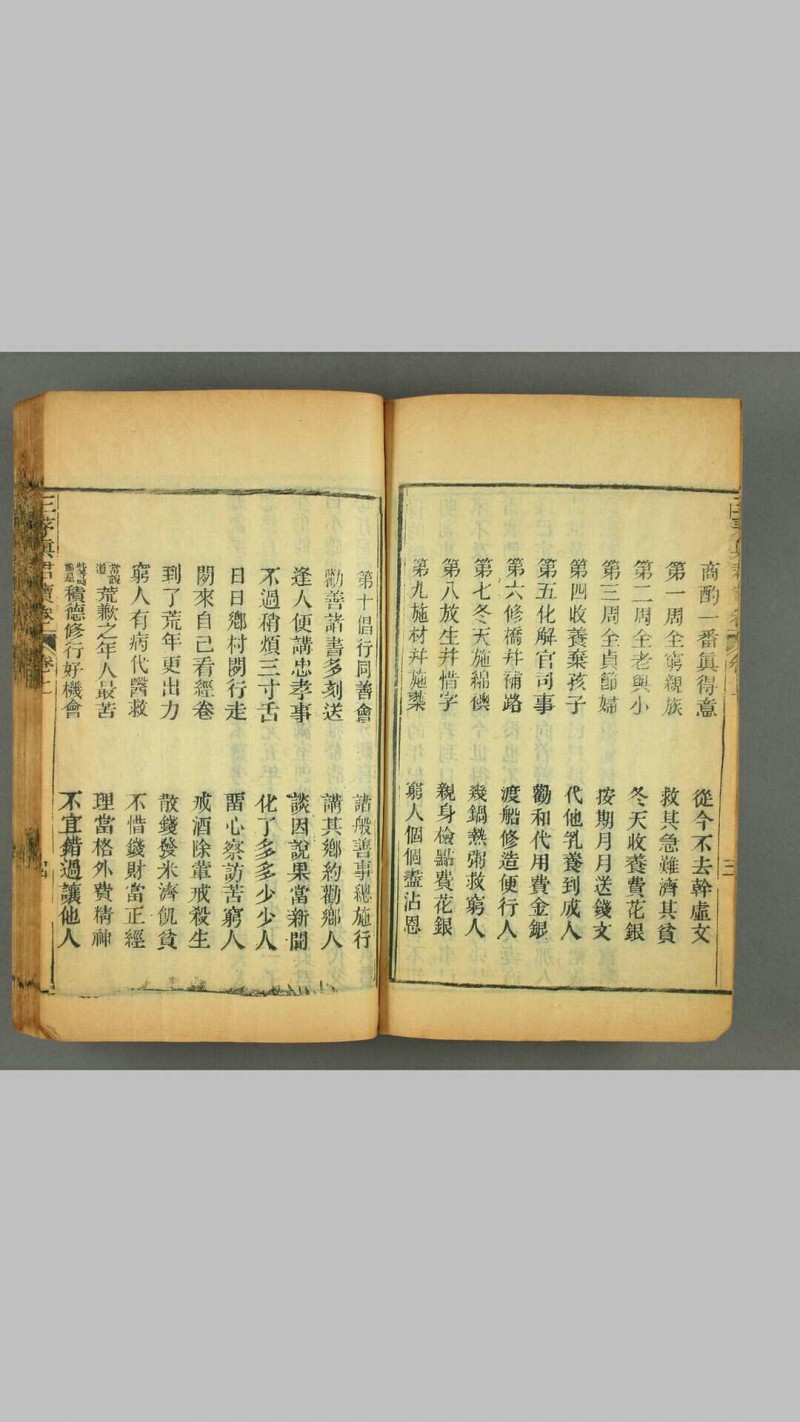 商酌一番眞得意　從今不去幹虛文
第一周全窮親族　救其急難濟其貧
第二周全老與小　冬天收養費花銀
第三周全貞節婦　按期月月送錢文
第四收養棄孩子　代他乳養到成人
第五化解官司事　勸和代用費金銀
第六修橋并補路　渡船修造便行人
第七冬天施綿襖　幾鍋熱粥救窮人
第八放生并惜字　親身檢點費花銀
第九施材并施藥　窮人個個盡沾恩
第十倡行同善會　諸般善事總施行
勸善諸書多刻送　講其鄉約勸鄉人
逢人便講忠孝事　談因說果當新聞
不過稍煩三寸舌　化了多多少少人
日日鄉村閒行走　留心察訪苦窮人
閒來自己看經卷　戒酒除葷戒殺生
到了荒年更出力　散錢發米濟飢貧
窮人有病代醫救　不惜錢財當正經
常說道荒歉之年人最苦　理當格外費精神
積德修行好機會　不宜錯過讓他人
三茅眞君寶卷　卷上